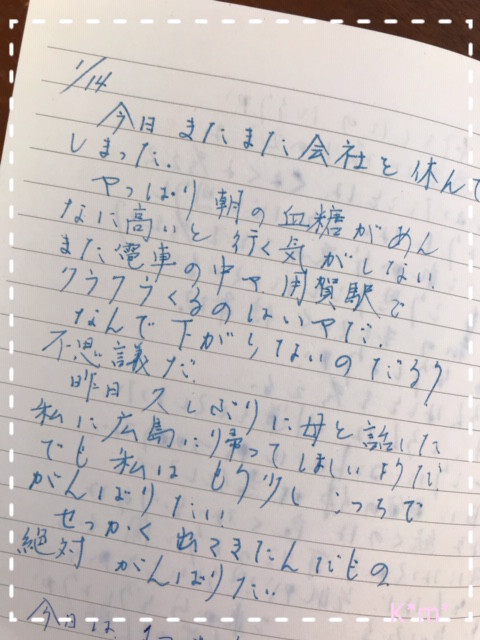 1/14
今日 またまた会社を休んで
しまった.
やっぱり朝の血糖があん
なに高いと行く気がしない
また電車の中や用賀駅で
クラクラくるのはいやだ.
なんで下がらないのだろう
不思議だ.
昨日久しぶりに母と話した
私に広島に帰ってほしいようだ
でも私はもう少しこっちで
がんばりたい!
せっかく出てきたんだもの
絶対がんばりたい
今日は
K*m*